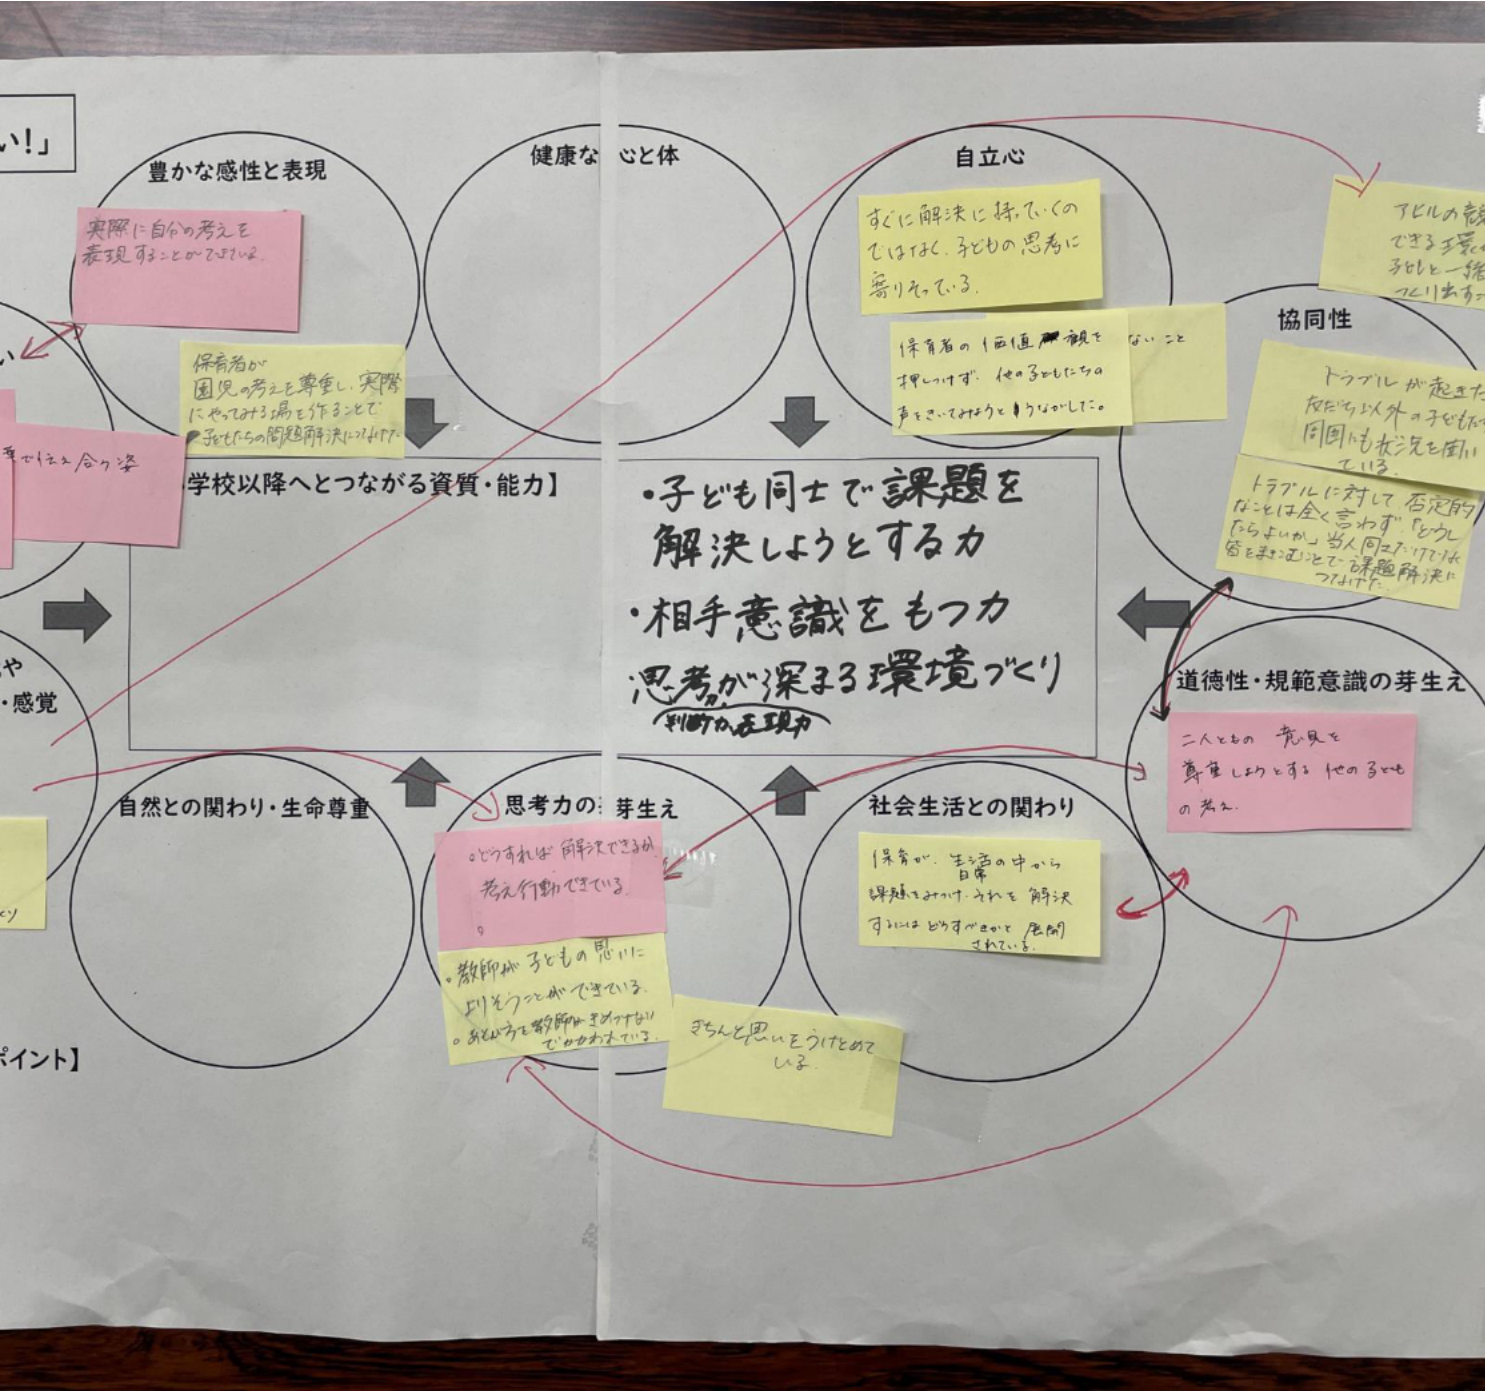 い!」
豊かな感性と表現
実際に自分の考えを
表現することができている。
保育者が
園児の考えを尊重し、実際
にやってみる場を作ることで
子どもたちの問題解決につなげた
健康な心と体
自立心
すぐに解決に持っていくの
ではなく、子どもの思考に
寄りそっている。
保育者の価値観を
押しつけず、他の子どもたちの
声をきいてみようとうながした。
ないこと
アヒルの
できる環
子どもと一緒
つくり出す
協同性
トラブルが起きた
友だち以外の子どもた
周囲にも状況を聞い
ている。
トラブルに対して否定的
なことは全く言わず、「どうし
たらよいか」当人同士だけでなく
皆をまきこむことで課題解決に
つなげた。
い
で伝え合う姿
学校以降へとつながる資質・能力】
・子ども同士で課題を
解決しようとする力
・相手意識をもつ力
思考が深まる環境づくり
判断力、表現力
や
・感覚
道徳性・規範意識の芽生え
二人ともの 意見を
尊重しようとする 他の子ども
の考え.
自然との関わり・生命尊重
思考力の芽生え
・どうすれば解決できるか
考え行動できている。
・教師が子どもの思いに
よりそうことができている。
きちんと思いをうけとめて
いる.
社会生活との関わり
保育が、生活の中から
日常
課題をみつけ、それを解決
するにはどうすべきかと展開
されている。
ポイント】